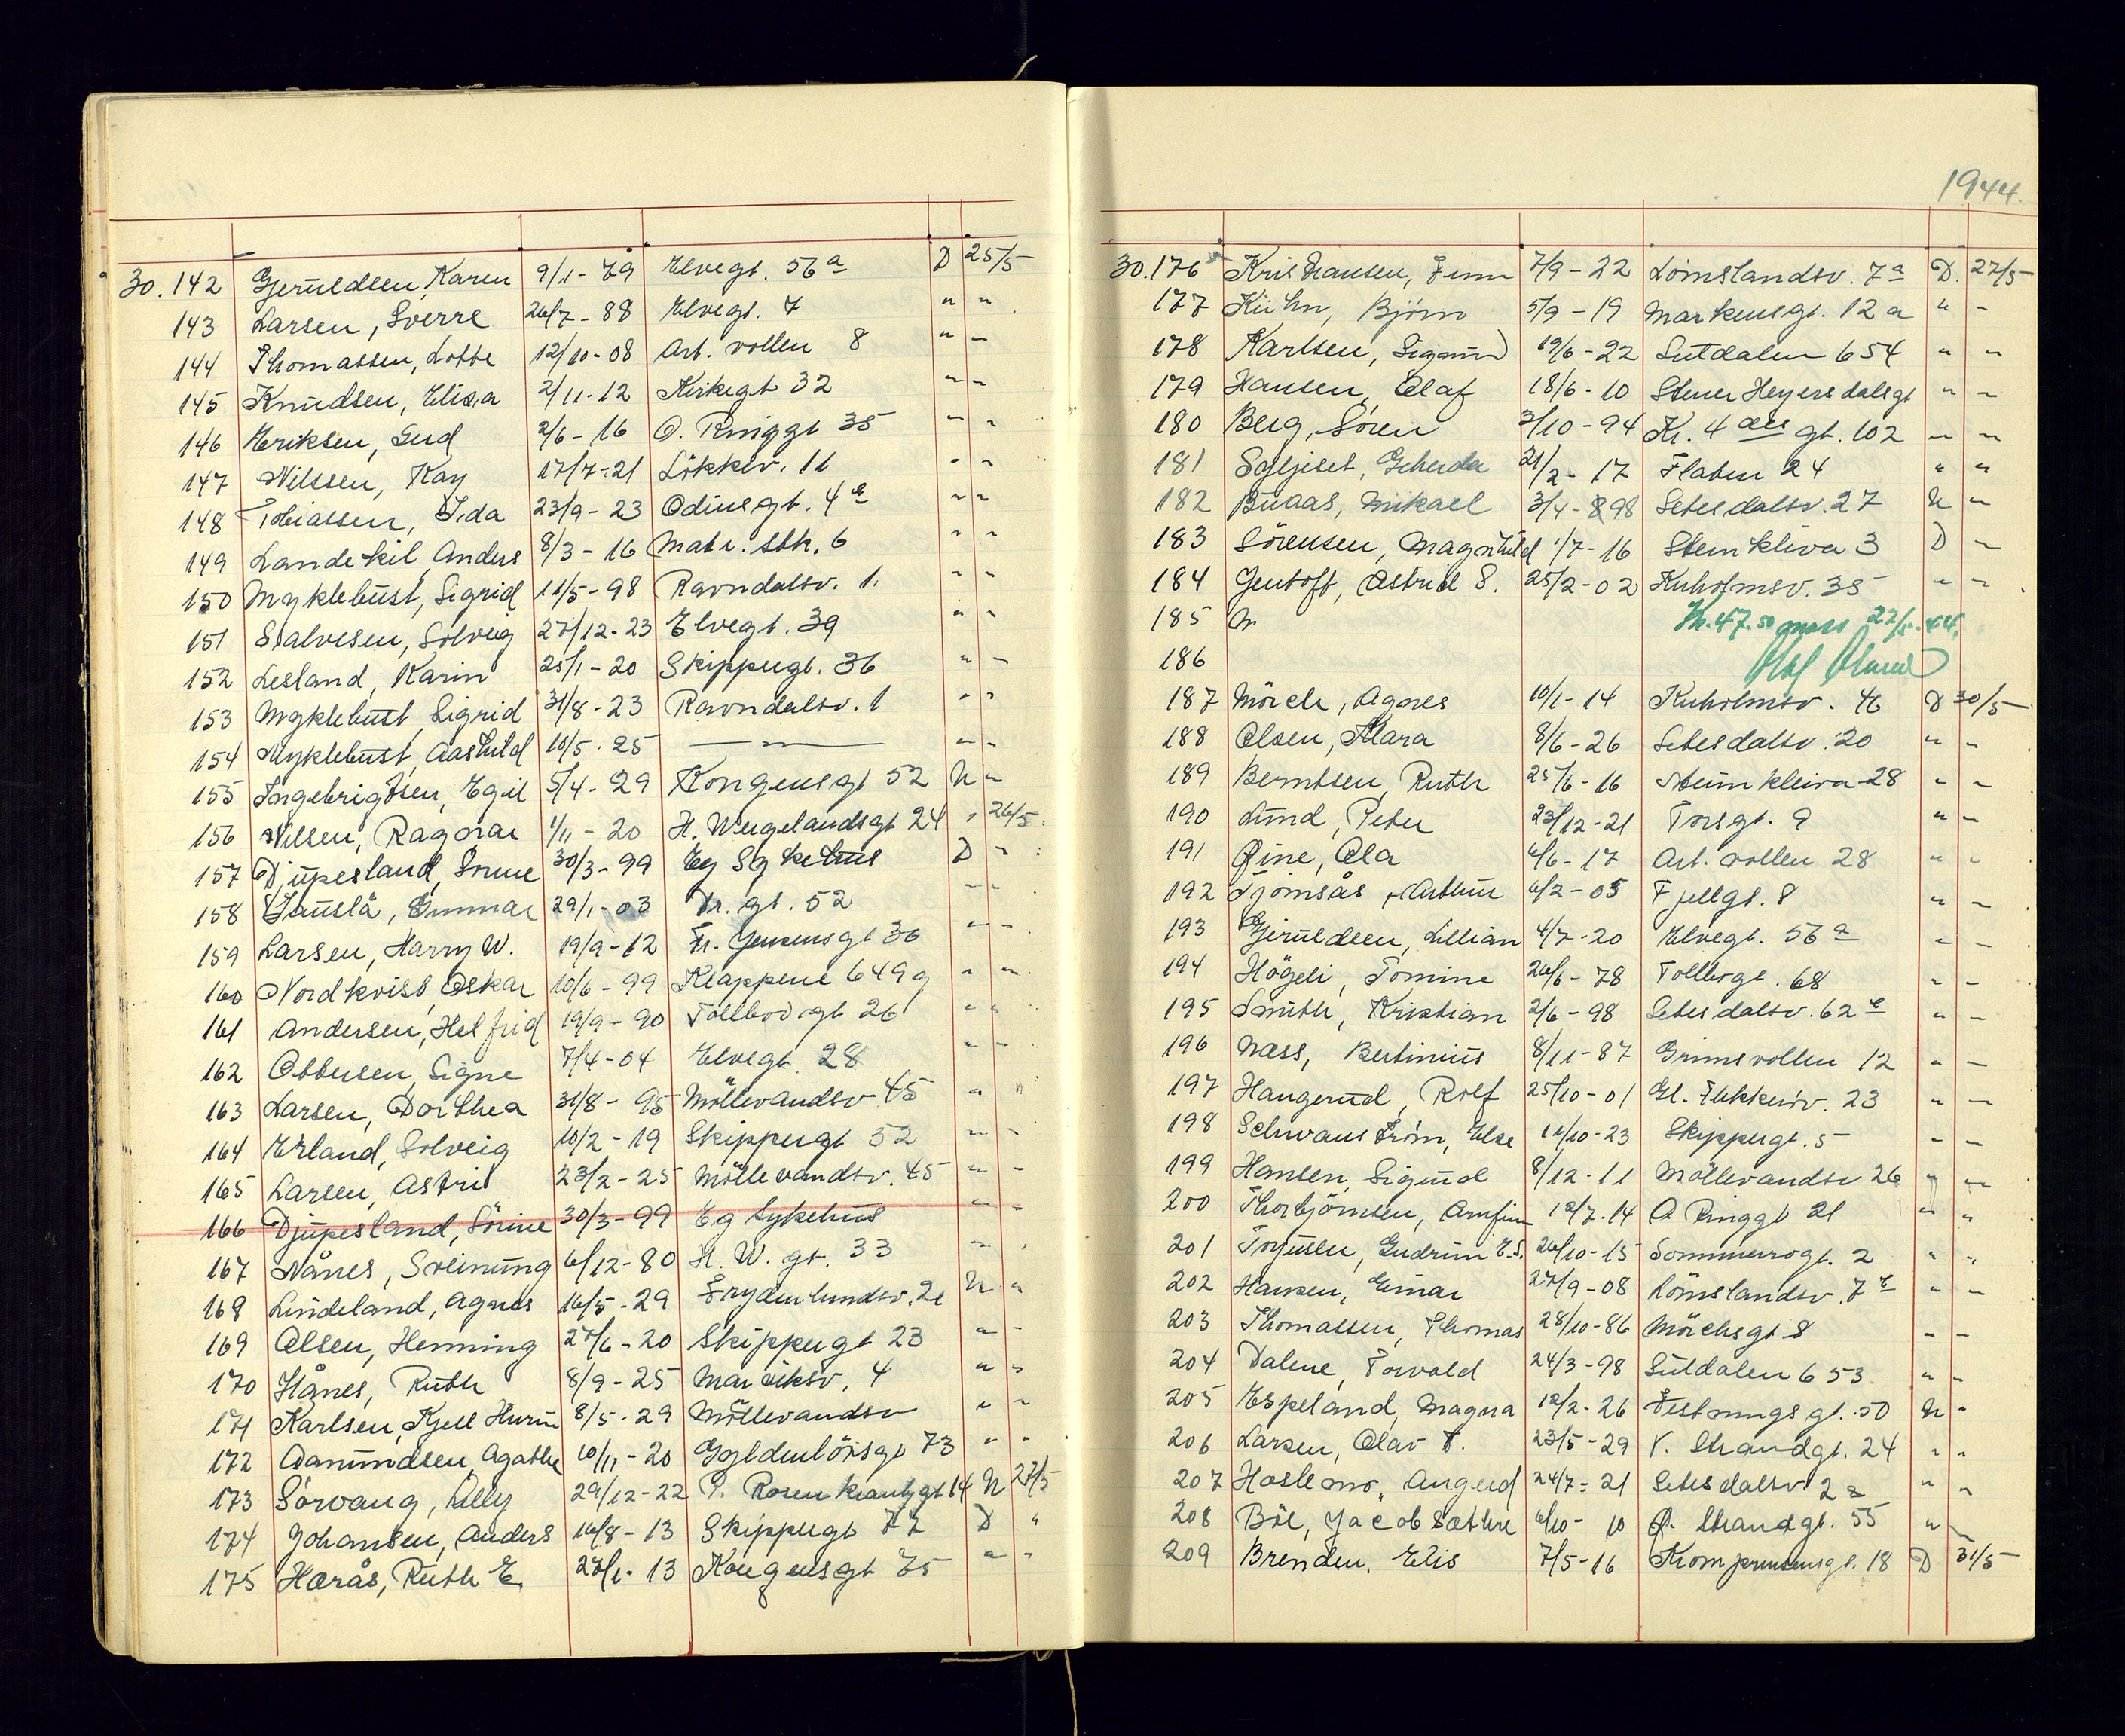 30.142 Gjeruldsen, Karen 9/1-79 Elvegt. 56a D 25/5
143 Larsen, Sverre 26/7-88 Elvegt. 7 " "
144 Thomassen, Lotte 12/10-08 Arb. vollen 8 " "
145 Knudsen, Elisa 2/11-12 Kirkegt 32 " "
146 Eriksen, Gerd 2/6-16 O. Ringgt 35 " "
147 Nilssen, Kay 17/7-21 Løkkev. 11 " "
148 Tobiassen, Ida 23/9-23 Odinsgt. 4 " "
149 Landekil, Anders 8/3-16 Matr. sth. 6 " "
150 Myklebust, Sigrid 11/5-98 Ravndalsv. 1. " "
151 Salvesen, Solveig 27/12-23 Elvegt. 39 " "
152 Lesland, Karin 25/1-20 Skippergt. 36 " "
153 Myklebust, Sigrid 31/8-23 Ravndalsv. 1 " "
154 Myklebust, Aashild 10/5-25 — " — " "
155 Ingebrigtsen, Egil 5/4-29 Kongensgt 52 N "
156 Nilsen, Ragnar 1/11-20 H. Wergelandsgt 24 " 26/5
157 Djupesland, Sørine 30/3-99 Eg Sykehus D "
158 Gunnar 29/1-03 Dr. gt. 52 " "
159 Larsen, Harry W. 19/9-12 Fr. Jensensgt 36 " "
160 Nordkvist, Oskar 10/6-99 Klappene 649g " "
161 Andersen, Helfrid 19/9-90 Tollbodgt 26 " "
162 Ottersen, Signe 7/4-04 Elvegt. 28 " "
163 Larsen, Dorthea 31/8-95 Møllevandsv 45 " "
164 Erland, Solveig 10/2-19 Skippergt 52 " "
165 Larsen, Astri 23/2-25 Møllevandsv. 45 " "
166 Djupesland, Sörine 30/3-99 Eg Sykehus " "
167 Nånes, Sveinung 6/12-80 H. W. gt. 33 " "
168 Lindeland, Agnes 16/5-29 Frydenlundsv. 2e N "
169 Olsen, Henning 27/6-20 Skippergt 23 " "
170 Hånes, Ruth 8/9-25 Marviksv. 4 " "
171 Karlsen, Kjell 8/5-29 Møllevandsv " "
172 Aamundsen, Agathe 10/11-20 Gyldenløvsgt 73 " "
173 Sørvang, Lilly 29/12-22 P. Rosenkrantzgt 14 N 27/5
174 Johansen, Anders 16/8-13 Skippergt 77 D "
175 Harås, Ruth E. 27/1-13 Kongensgt 75 " "
1944.
30.176 Kristiansen, Finn 7/9-22 Lömslandsv. 7a D. 27/5
177 Kühn, Bjørn 5/9-19 Markensgt. 12a " "
178 Karlsen, Sigmund 19/6-22 Suldalen 654 " "
179 Hansen, Olaf 18/6-10 Stener Heyersdalsgt " "
180 Berg, Sören 3/10-94 Kr. 4des gt. 102 " "
181 21/2-17 Flaten 24 " "
182 Buaas, Mikael 3/4-98 Setesdalsv. 27 N "
183 Sörensen, Magnhild 1/7-16 Steinkleiva 3 D "
184 Gentoft, Astrid S. 25/2-02 Kuholmsv. 35 " "
185 Kr. 47.50 22/5-44.
186
187 Mörch, Agnes 10/1-14 Kuholmsv. 46 D 30/5
188 Olsen, Klara 8/6-26 Setesdalsv. 20 " "
189 Berntsen, Ruth 25/6-16 Steinkleiva 28 " "
190 Lund, Peter 23/12-21 Torsgt. 9 " "
191 Ola 6/6-17 Arb. vollen 28 " "
192 Tjømsås, Arthur 6/2-05 Fjellgt. 8 " "
193 Gjeruldsen, Lillian 4/7-20 Elvegt. 56a " "
194 Högeli, Tomine 26/6-78 Tollbogt. 68 " "
195 Smith, Kristian 2/6-98 Setesdalsv. 62e " "
196 Næss, Bertinius 8/11-87 Grimsvollen 12 " "
197 Haugerud, Rolf 25/10-01 Gl. Flekkerøv. 23 " "
198 Schwanström, Else 11/10-23 Skippergt. 5 " "
199 Hansen, Sigurd 8/12-11 Möllevandsv 26 " "
200 Thorbjörnsen, Arnfinn 12/7-14 O Ringgt 21 " "
201 Torjusen, Gudrun E.S. 26/10-15 Sommerrogt. 2 " "
202 Hansen, Einar 27/9-08 Lömslandsv. 7e " "
203 Thomassen, Thomas 28/10-86 Mörchsgt 8 " "
204 Dalene, Torvald 24/3-98 Suldalen 653 " "
205 Espeland, Magna 12/2-26 Festningsgt. 50 N "
206 Larsen, Olav T. 23/5-29 V. Strandgt. 24 " "
207 Haslemo, Angerd 24/7-21 Setesdalsv 2a " "
208 Böe, Jacob Sæthre 6/10-10 Ø. Strandgt. 55 " "
209 Brenden, Elis 7/5-16 Kronprinsensgt. 18 D 31/5